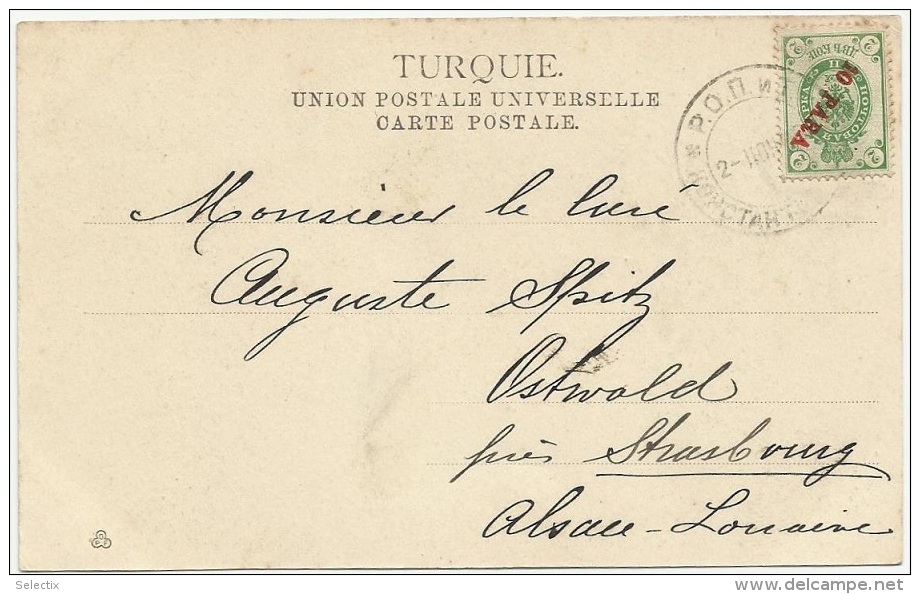 TURQUIE.
UNION POSTALE UNIVERSELLE
CARTE POSTALE.
Р.О.П и
2-
КОНСТАНТ
ДВѢ КОП
ПОЧТОВАЯ МАРКА
2
2
2
2
10 PARA
Monsieur le Curé
Auguste Spitz
Ostwald
près Strasbourg
Alsace-Lorraine
Selectix
delcampe.net